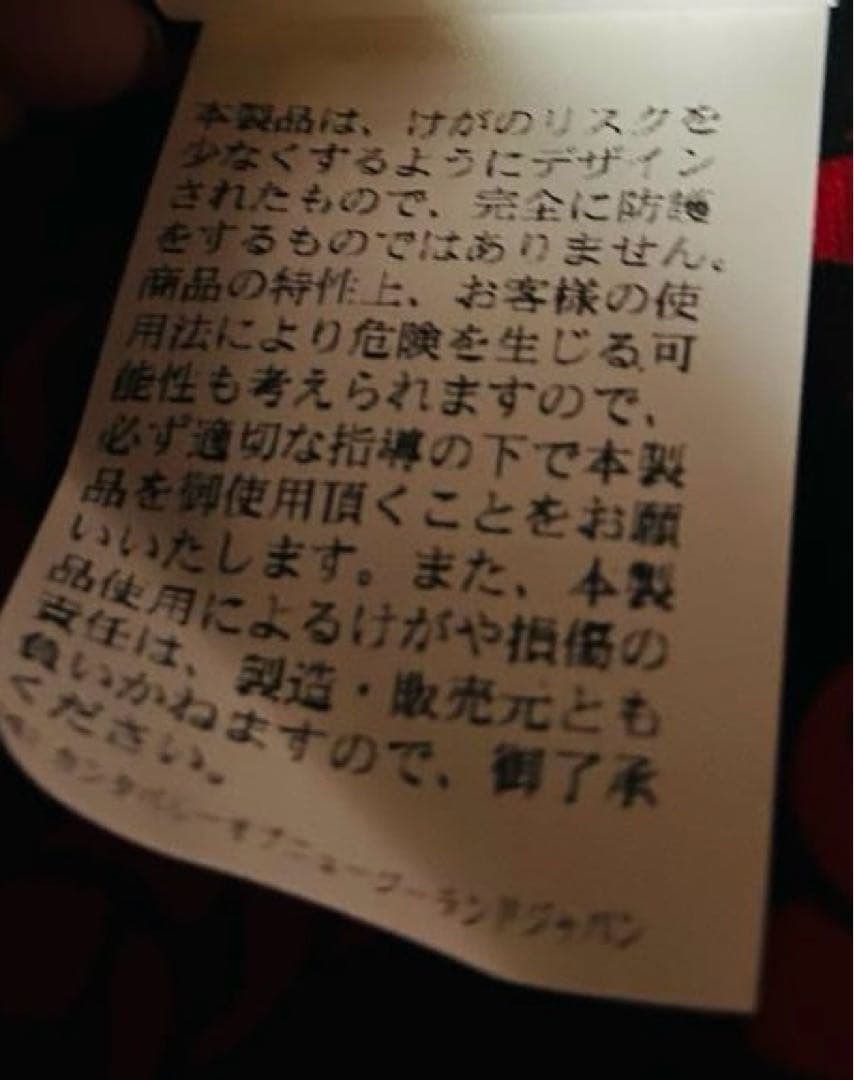 本製品は、けがのリスクを
少なくするようにデザイン
されたもので、完全に防護
をするものではありません。
商品の特性上、お客様の使
用法により危険を生じる可
能性も考えられますので、
必ず適切な指導の下で本製
品を御使用頂くことをお願
いいたします。また、本製
品使用によるけがや損傷の
責任は、製造・販売元とも
負いかねますので、御了承
ください。
カンタベリーオブニュージーランドジャパン